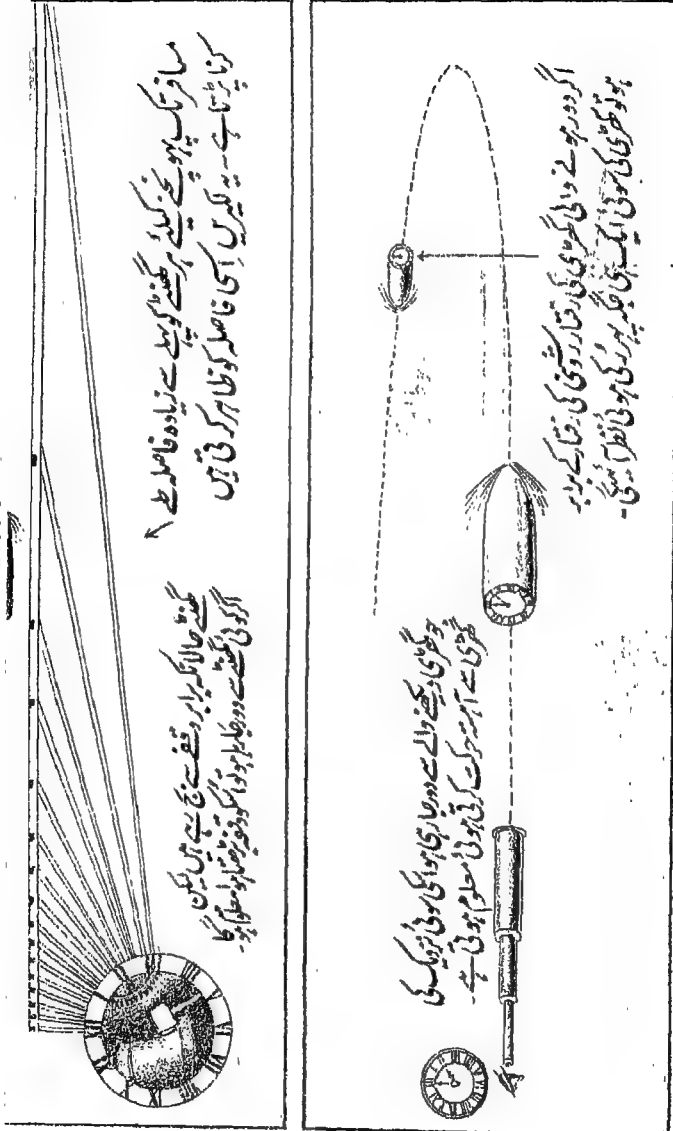 مسافر تک پہونچنے کیلئے ہر گھنٹے کو پہلے سے زیادہ فاصلہ طے
کرنا پڑتا ہے۔ یہ لکیریں اسی فاصلہ کو ظاہر کرتی ہیں
گھنٹے حالانکہ برابر وقفے سے بج رہے ہیں لیکن
اگر کوئی گھنٹے سے دور جا رہا ہو تو اسکو وقفہ بڑھتا ہوا معلوم ہوگا۔
اگر دور ہونے والی گھڑی کی رفتار روشنی کی رفتار کے برابر
ہو تو گھڑی کی سوئی ایک ہی جگہ پر رکی ہوئی نظر آئیگی۔
جو گھڑی دیکھنے والے سے دور جا رہی ہو اسکی سوئی نزدیک کی
گھڑی سے آہستہ حرکت کرتی ہوئی معلوم ہوتی ہے۔